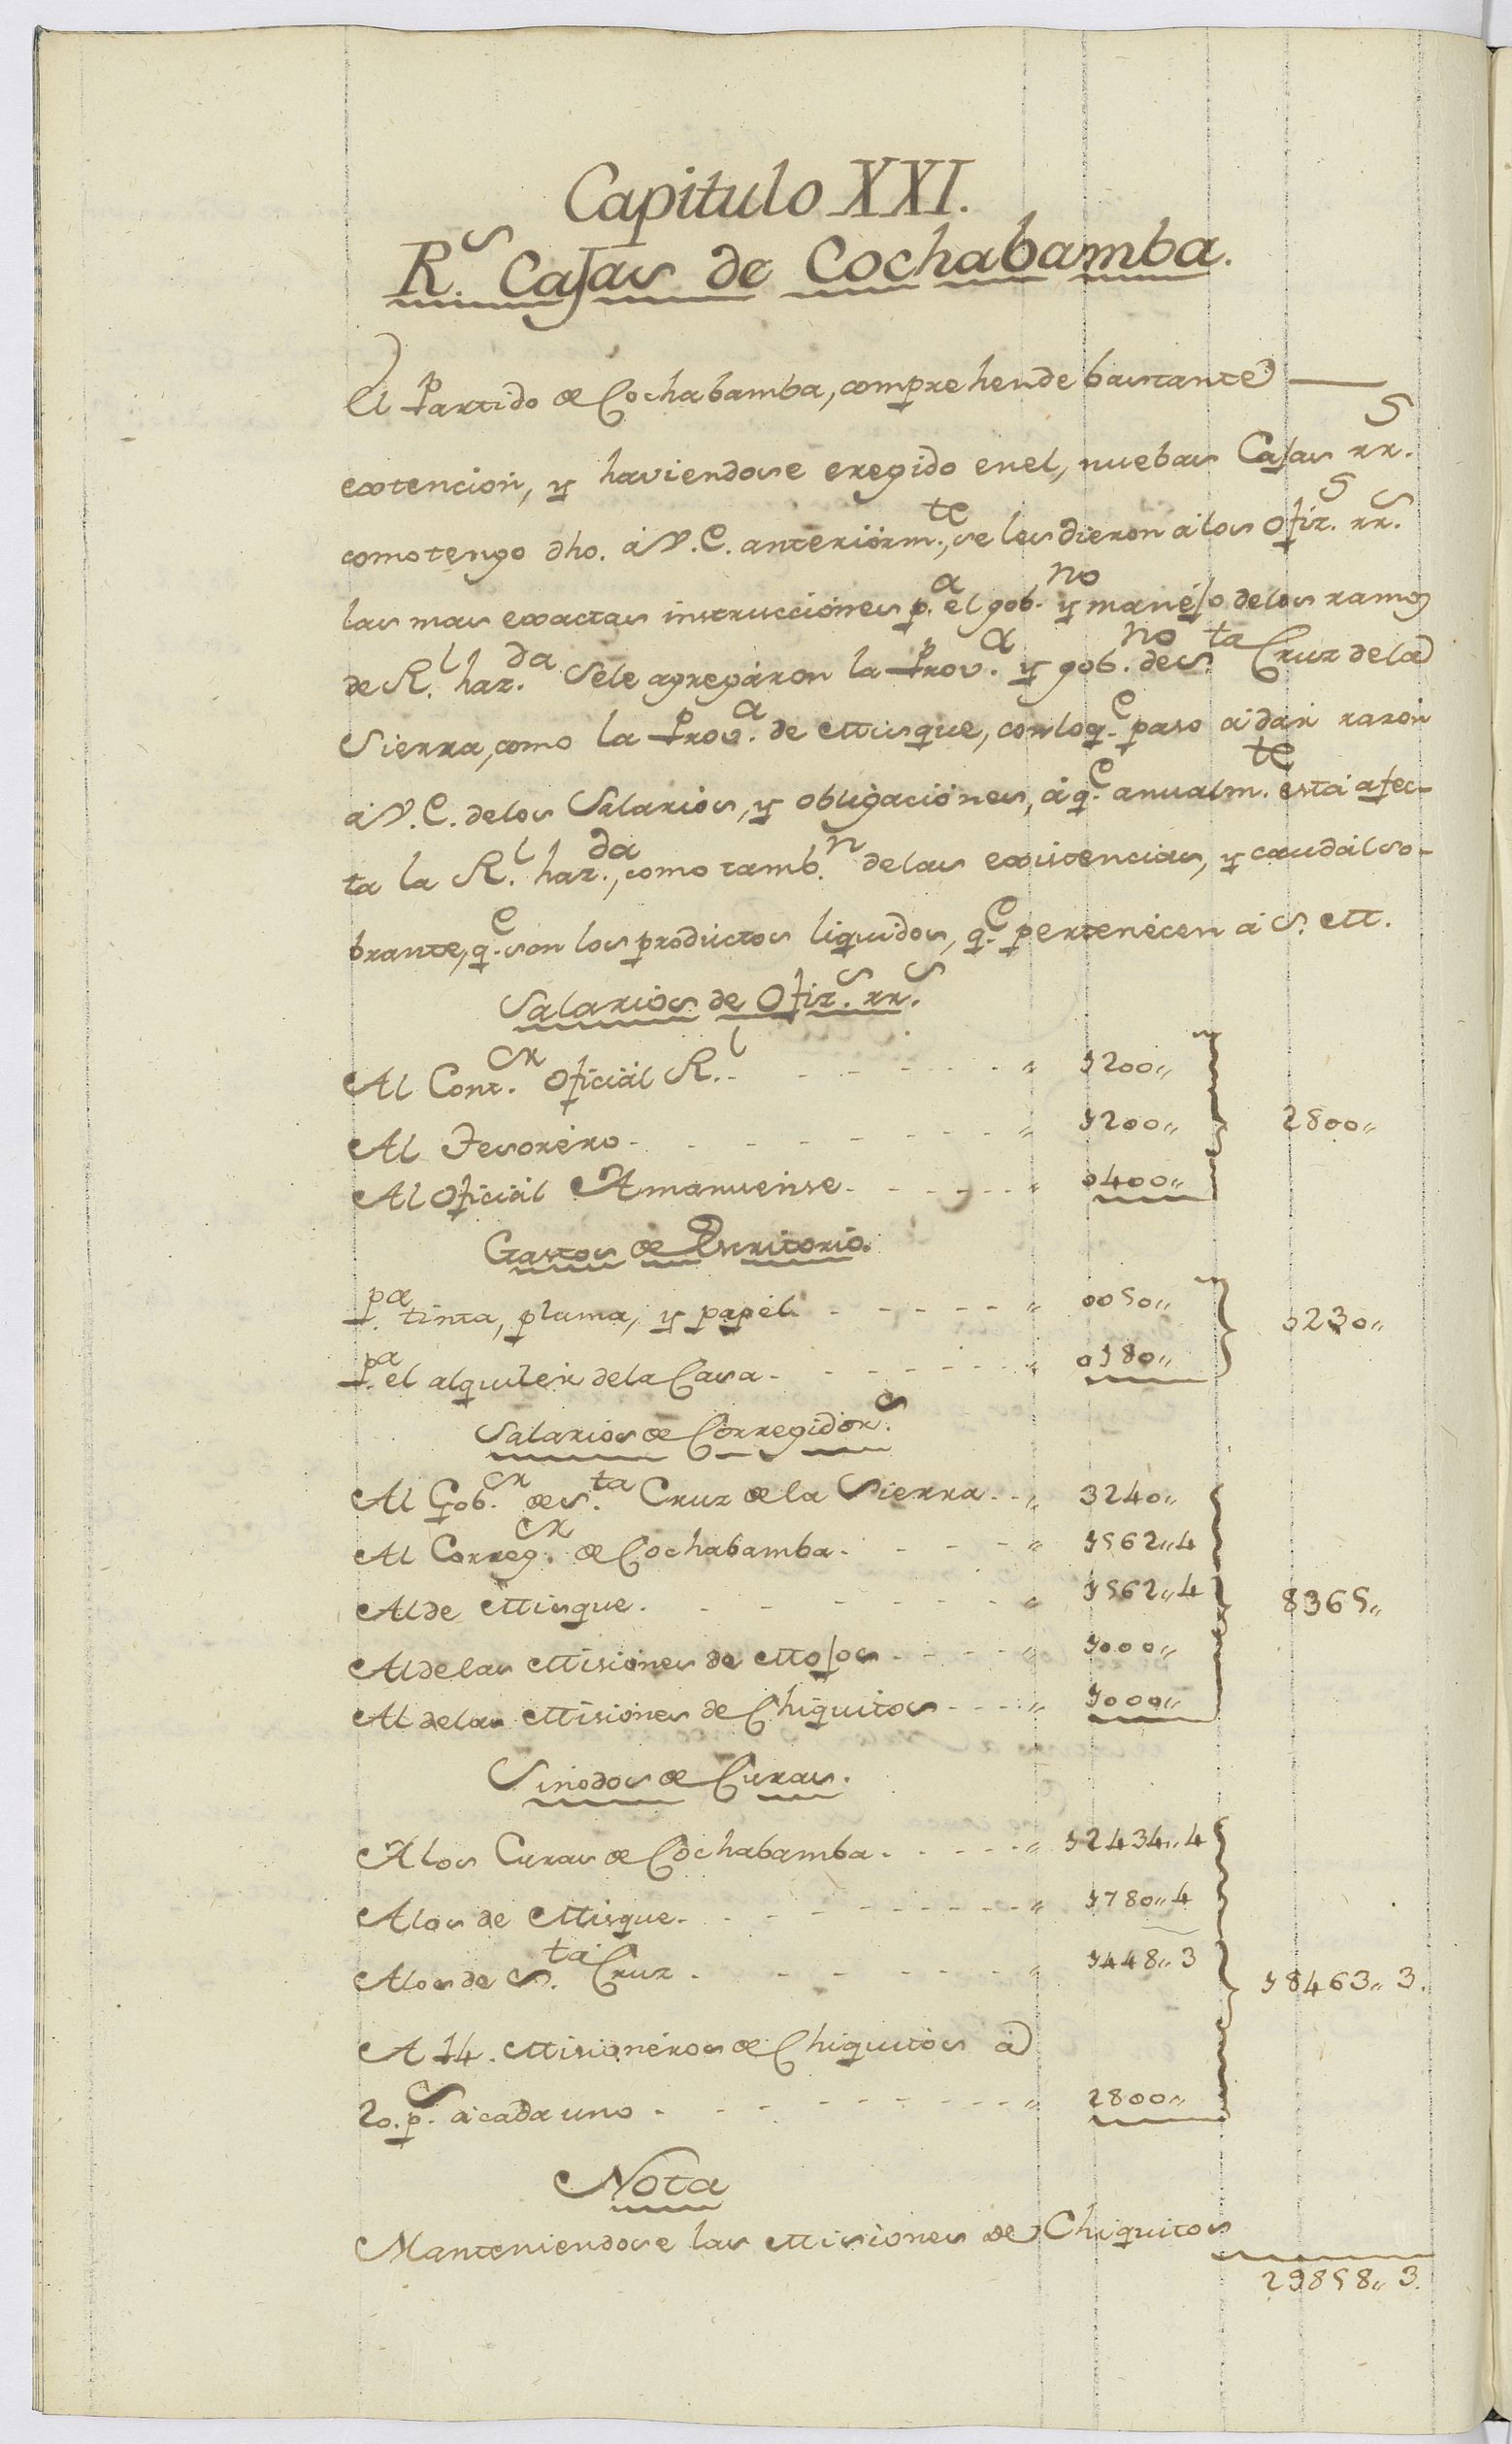 Capitulo XXI.
R.s Cajas de Cochabamba.
El Partido de Cochabamba, comprehende bastante
extencion, y haviendose eregido enel, nuebas Cajas rr.s
como tengo dho. á V.E. anteriorm.te, se les dieron álos Ofiz.s rr.s
las mas exactas instrucciones p.a el gob.no y manejo delos ramos
de R.l haz.da Sele agregáron la Prov.a y gob.no de S.ta Cruz dela
Sierra, como la Prov.a de Misque, conloq.e paso á dar razon
á V.E. delos Salarios, y obligaciones, á q.e anualm.te está afec-
ta la R.l haz.da, como tamb.n delas existencias, y caudál so-
brante, q.e son los productos liquidos, q.e pertenécen á S. M.
Salarios de Ofiz.s rr.s
Al Cont.or Oficiál R.l - - - - - - " 1200"
Al Tesoréro - - - - - - - " 1200" 2800"
Al Oficiál Amanuense - - - - - " 0400"
Gastos de Escritorio.
P.a tinta, pluma, y papél - - - - - " 0050"
0230"
P.a el alquiler dela Casa - - - - - - " 0180"
Salarios de Corregidor.s
Al Gob.or de S.ta Cruz de la Sierra - - " 3240"
Al Correg.or de Cochabamba - - - - " 1562"4
Al de Misque - - - - - - - " 1562"4 8365"
Al delas Misiones de Mojos - - - - " 1000"
Al delas Misiones de Chiquitos - - - " 1000"
Sinodos de Curas.
Alos Curas de Cochabamba - - - - " 12434"4
Alos de Misque - - - - - - - - " 1780"4
Alos de S.ta Cruz - - - - - - " 1448"3
18463"3.
A 14. Misionéros de Chiquitos á
20. p.s á cada uno - - - - - - - " 2800"
Nota
Manteniendose las Misiones de Chiquitos
29858"3.